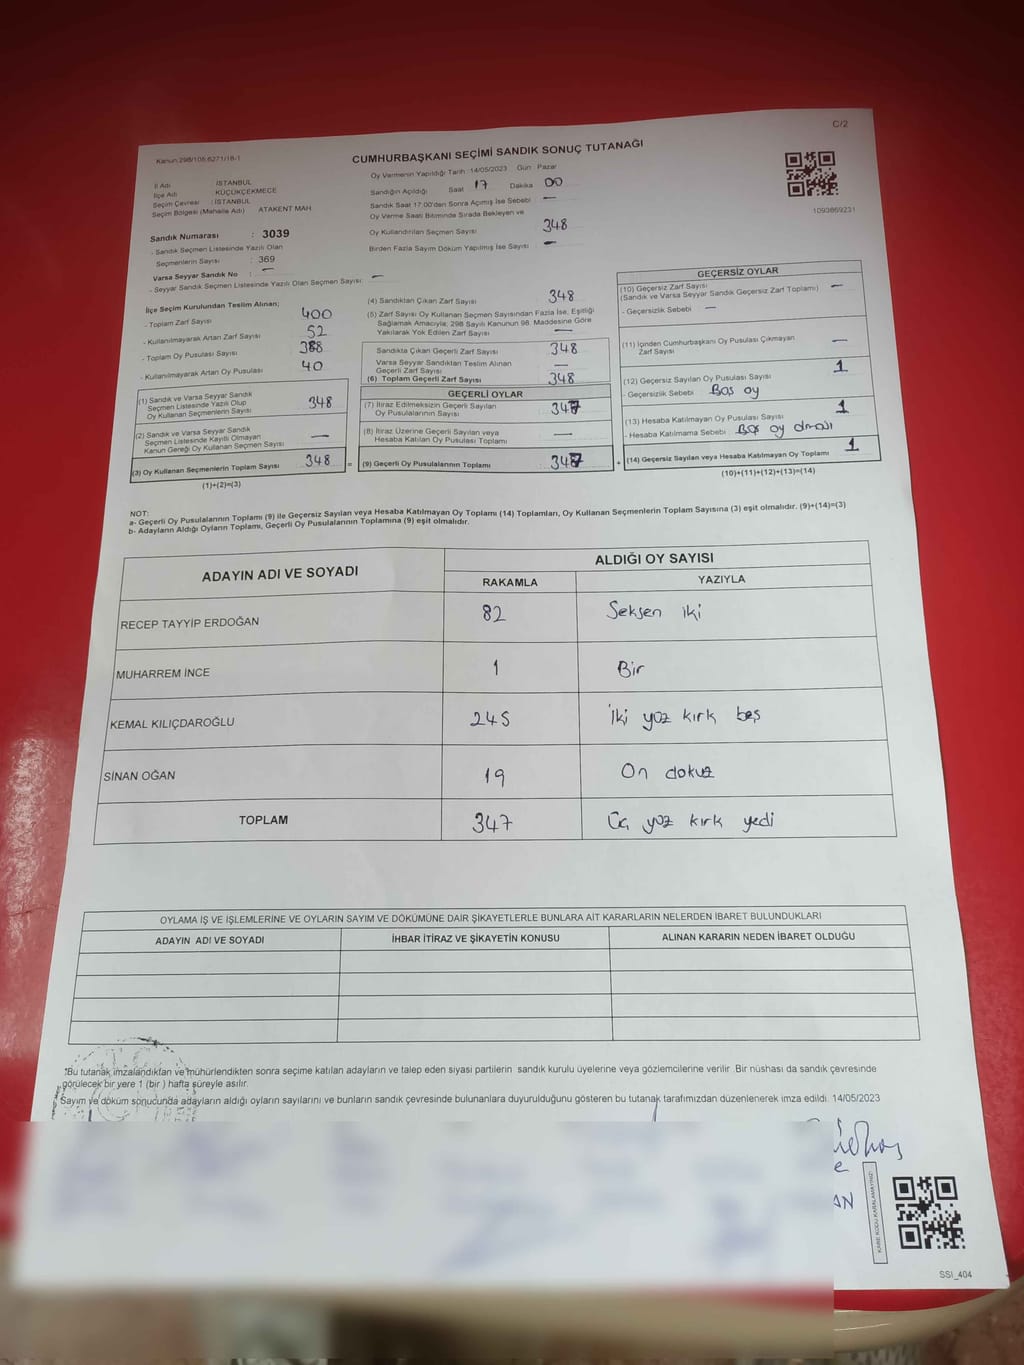 C/2
Kanun:298/105;6271/18-1
CUMHURBAŞKANI SEÇİMİ SANDIK SONUÇ TUTANAĞI
İl Adı : İSTANBUL
İlçe Adı : KÜÇÜKÇEKMECE
Seçim Çevresi : İSTANBUL
Seçim Bölgesi (Mahalle Adı) ATAKENT MAH.
Sandık Numarası : 3039
- Sandık Seçmen Listesinde Yazılı Olan
Seçmenlerin Sayısı : 369
Varsa Seyyar Sandık No : —
- Seyyar Sandık Seçmen Listesinde Yazılı Olan Seçmen Sayısı: —
Oy Vermenin Yapıldığı Tarih :14/05/2023 Gün : Pazar
Sandığın Açıldığı Saat 17 Dakika 00
Sandık Saat 17:00'den Sonra Açılmış İse Sebebi —
Oy Verme Saati Bitiminde Sırada Bekleyen ve
Oy Kullandırılan Seçmen Sayısı 348
Birden Fazla Sayım Döküm Yapılmış İse Sayısı —
1093869231
İlçe Seçim Kurulundan Teslim Alınan;
- Toplam Zarf Sayısı 400
- Kullanılmayarak Artan Zarf Sayısı 52
- Toplam Oy Pusulası Sayısı 388
- Kullanılmayarak Artan Oy Pusulası 40
(1) Sandık ve Varsa Seyyar Sandık
Seçmen Listesinde Yazılı Olup
Oy Kullanan Seçmenlerin Sayısı 348
(2) Sandık ve Varsa Seyyar Sandık
Seçmen Listesinde Kayıtlı Olmayan
Kanun Gereği Oy Kullanan Seçmen Sayısı —
(3) Oy Kullanan Seçmenlerin Toplam Sayısı 348
(1)+(2)=(3)
(4) Sandıktan Çıkan Zarf Sayısı 348
(5) Zarf Sayısı Oy Kullanan Seçmen Sayısından Fazla İse, Eşitliği
Sağlamak Amacıyla; 298 Sayılı Kanunun 98. Maddesine Göre
Yakılarak Yok Edilen Zarf Sayısı —
Sandıkta Çıkan Geçerli Zarf Sayısı 348
Varsa Seyyar Sandıktan Teslim Alınan
Geçerli Zarf Sayısı —
(6) Toplam Geçerli Zarf Sayısı 348
GEÇERLİ OYLAR
(7) İtiraz Edilmeksizin Geçerli Sayılan
Oy Pusulalarının Sayısı 347
(8) İtiraz Üzerine Geçerli Sayılan veya
Hesaba Katılan Oy Pusulası Toplamı —
= (9) Geçerli Oy Pusulalarının Toplamı 347
GEÇERSİZ OYLAR
(10) Geçersiz Zarf Sayısı —
(Sandık ve Varsa Seyyar Sandık Geçersiz Zarf Toplamı)
- Geçersizlik Sebebi —
(11) İçinden Cumhurbaşkanı Oy Pusulası Çıkmayan
Zarf Sayısı —
(12) Geçersiz Sayılan Oy Pusulası Sayısı 1
- Geçersizlik Sebebi Boş oy
(13) Hesaba Katılmayan Oy Pusulası Sayısı 1
- Hesaba Katılmama Sebebi Boş oy olması
+ (14) Geçersiz Sayılan veya Hesaba Katılmayan Oy Toplamı 1
(10)+(11)+(12)+(13)=(14)
NOT:
a- Geçerli Oy Pusulalarının Toplamı (9) ile Geçersiz Sayılan veya Hesaba Katılmayan Oy Toplamı (14) Toplamları, Oy Kullanan Seçmenlerin Toplam Sayısına (3) eşit olmalıdır. (9)+(14)=(3)
b- Adayların Aldığı Oyların Toplamı, Geçerli Oy Pusulalarının Toplamına (9) eşit olmalıdır.
ADAYIN ADI VE SOYADI
ALDIĞI OY SAYISI
RAKAMLA YAZIYLA
RECEP TAYYİP ERDOĞAN 82 Seksen iki
MUHARREM İNCE 1 Bir
KEMAL KILIÇDAROĞLU 245 İki yüz kırk beş
SİNAN OĞAN 19 On dokuz
TOPLAM 347 Üç yüz kırk yedi
OYLAMA İŞ VE İŞLEMLERİNE VE OYLARIN SAYIM VE DÖKÜMÜNE DAİR ŞİKAYETLERLE BUNLARA AİT KARARLARIN NELERDEN İBARET BULUNDUKLARI
ADAYIN ADI VE SOYADI İHBAR İTİRAZ VE ŞİKAYETİN KONUSU ALINAN KARARIN NEDEN İBARET OLDUĞU
*Bu tutanak imzalandıktan ve mühürlendikten sonra seçime katılan adayların ve talep eden siyasi partilerin sandık kurulu üyelerine veya gözlemcilerine verilir. Bir nüshası da sandık çevresinde
görülecek bir yere 1 (bir) hafta süreyle asılır.
Sayım ve döküm sonucunda adayların aldığı oyların sayılarını ve bunların sandık çevresinde bulunanlara duyurulduğunu gösteren bu tutanak tarafımızdan düzenlenerek imza edildi. 14/05/2023
KARE KODU KARALAMAYINIZ!
SSI_404